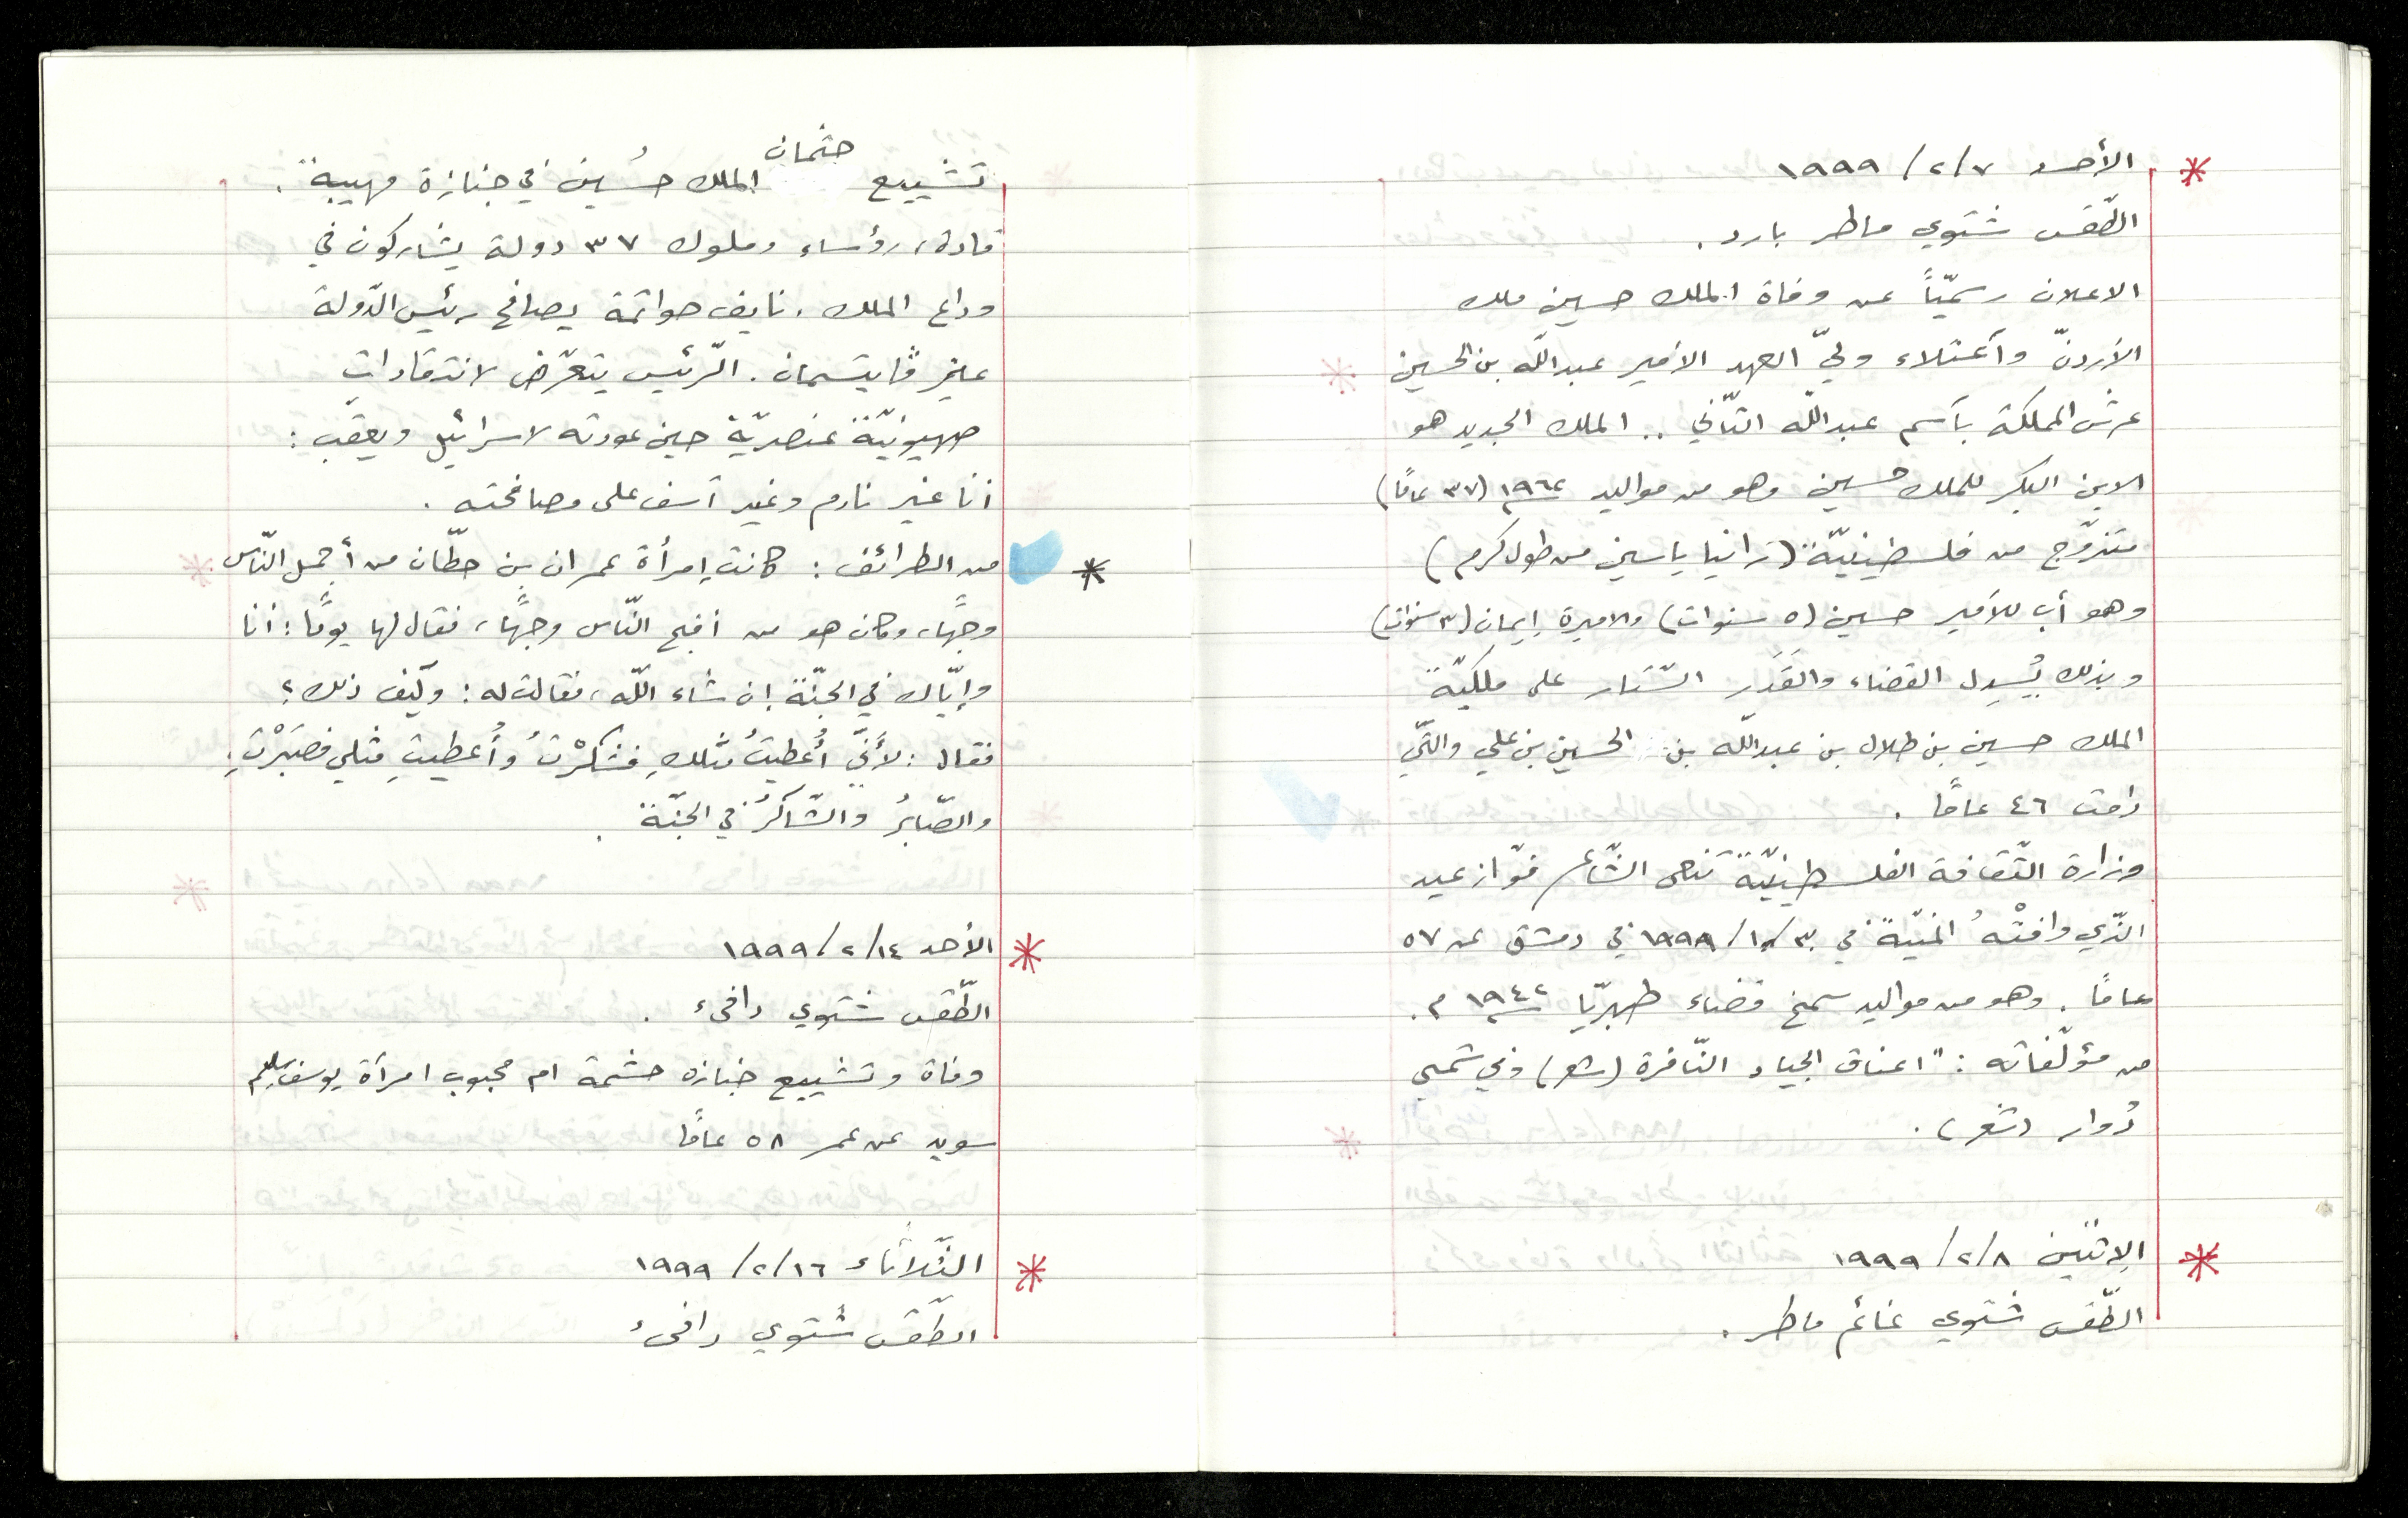 الأحد ٧/٢/١٩٩٩
الطّقس شتوي ماطر بارد.
الاعلان رسميّاً عن وفاة الملك حسين ملك
الأردنّ واعتلاء وليّ العهد الأمير عبدالله بن الحسين
عرش المملكة بآسم عبدالله الثّاني .. الملك الجديد هو
الابن البكر للملك حسين وهو من مواليد ١٩٦٢م (٣٧ عامًا)
متزوّج من فلسطينيّة (رانيا ياسين من طولكرم)
وهو أب للأمير حسين (٥ سنوات) والاميرة إيمان (٣ سنوات)
وبذلك يُسدِل القضاء والقَدَر السّتار على ملكيّة
الملك حسين بن طلال بن عبدالله بن الحسين بن علي والتّي
دامت ٤٦ عامًا.
وزارة الثّقافة الفلسطينيّة تنعى الشّاعر فوّاز عيد
الذّي وافتْهُ المنيّة في ٣٠/١/١٩٩٩ في دمشق عن ٥٧
عامًا. وهو من مواليد سمخ قضاء طبريّا ١٩٤٢م.
من مؤلّفاته: "اعناق الجياد النّافرة (شعر) وفي شمسي
دُوار (شعر).
الإثنين ٨/٢/١٩٩٩
الطّقس شتوي غائم ماطر.
تشييع جثمان الملك حُسين في جنازة مهيبة.
قادة، رؤساء وملوك ٣٧ دولة يشاركون في
وداع الملك. نايف حواتمة يصافح رئيس الدّولة
عيزر ڤايتسمان. الرّئيس يتعرّض لانتقادات
صهيونيّة عنصريّة حين عودته لاسرائيل ويعقّب:
أنا غير نادم وغير آسف على مصافحته.
من الطرائف: كانت إمرأة عمران بن حطّان من أجمل النّاس
وجهًا، وكان هو من اقبح النّاس وجهًا، فقال لها يومًا: أنا
وإيّاك في الجنّة إن شاء اللّه، فقالت له: وكيف ذلك؟
فقال: لأنّي أُعطيتُ مثلكِ فشكرْتُ وأُعطيتِ مثلي فصبَرْتِ.
والصّابرُ والشّاكرُ في الجنّة.
الأحد ١٤/٢/١٩٩٩
الطّقس شتوي دافىء.
وفاة وتشييع جنازه حشمة ام محبوب امرأة يوسف سليم
سويد عن عمر ٥٨ عامًا
الثّلاثاء ١٦/٢/١٩٩٩
الطّقس شتوي دافىء